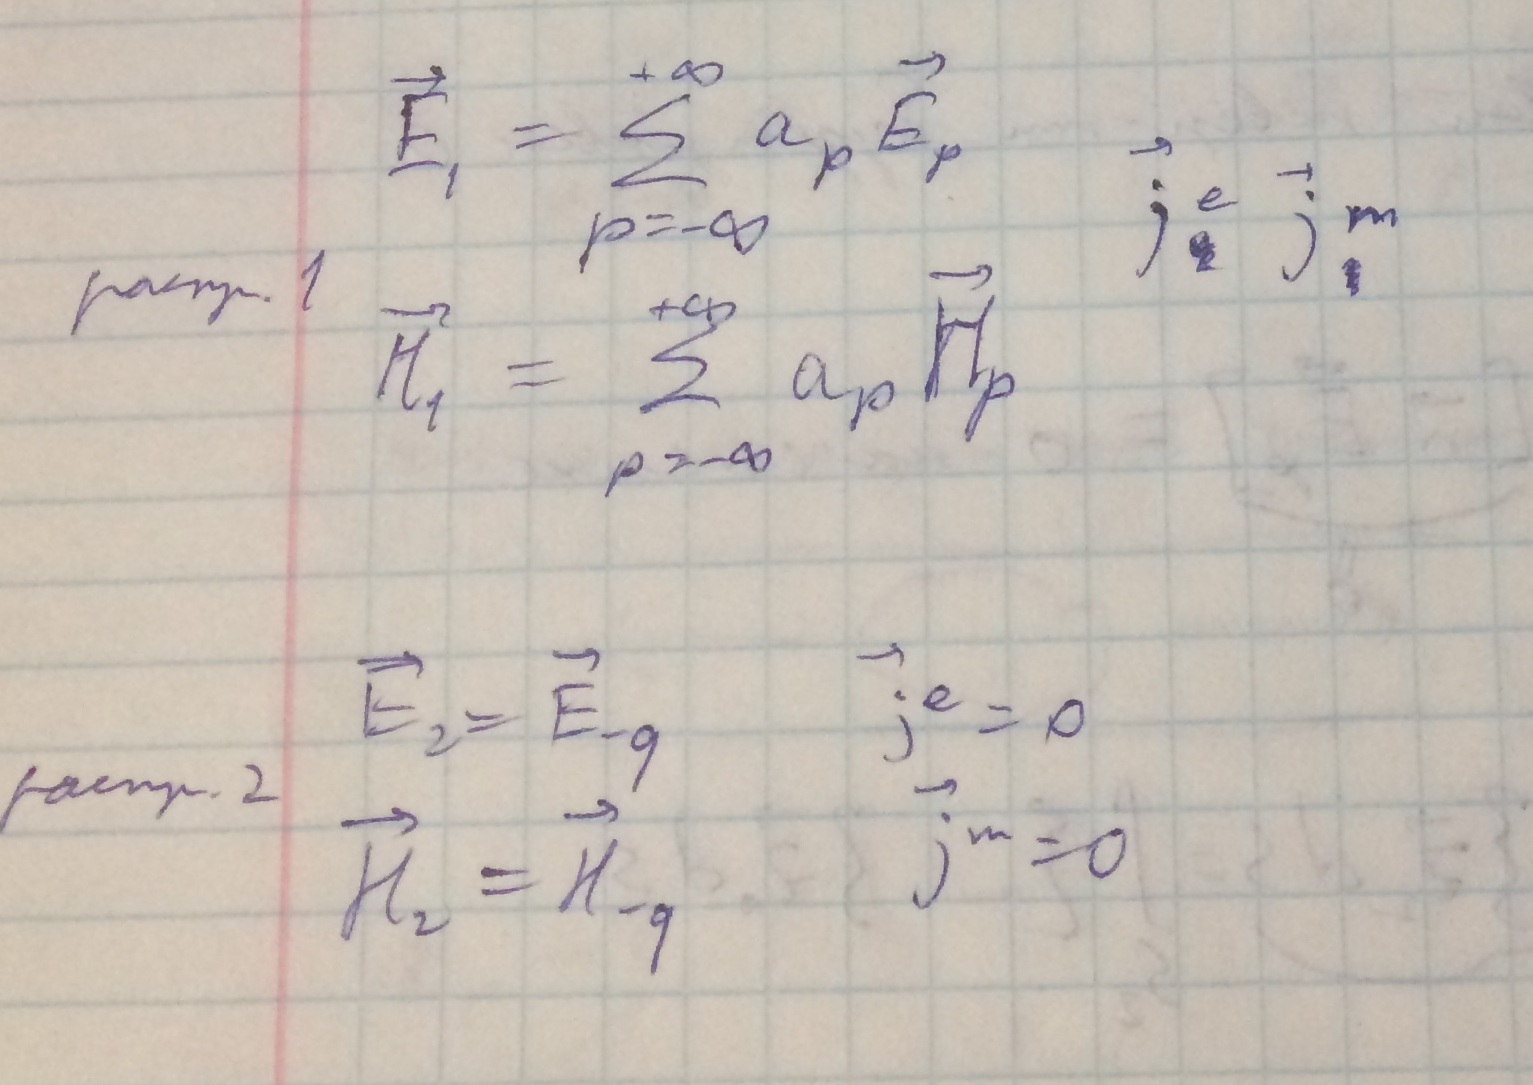 E⃗₁ = ∑_{p=-∞}^{+∞} a_p E⃗_p   j⃗^e j⃗^m
распр. 1
H⃗₁ = ∑_{p=-∞}^{+∞} a_p H⃗_p
E⃗₂ = E⃗_{-q}   j⃗^e = 0
распр. 2
H⃗₂ = H⃗_{-q}   j⃗^m = 0